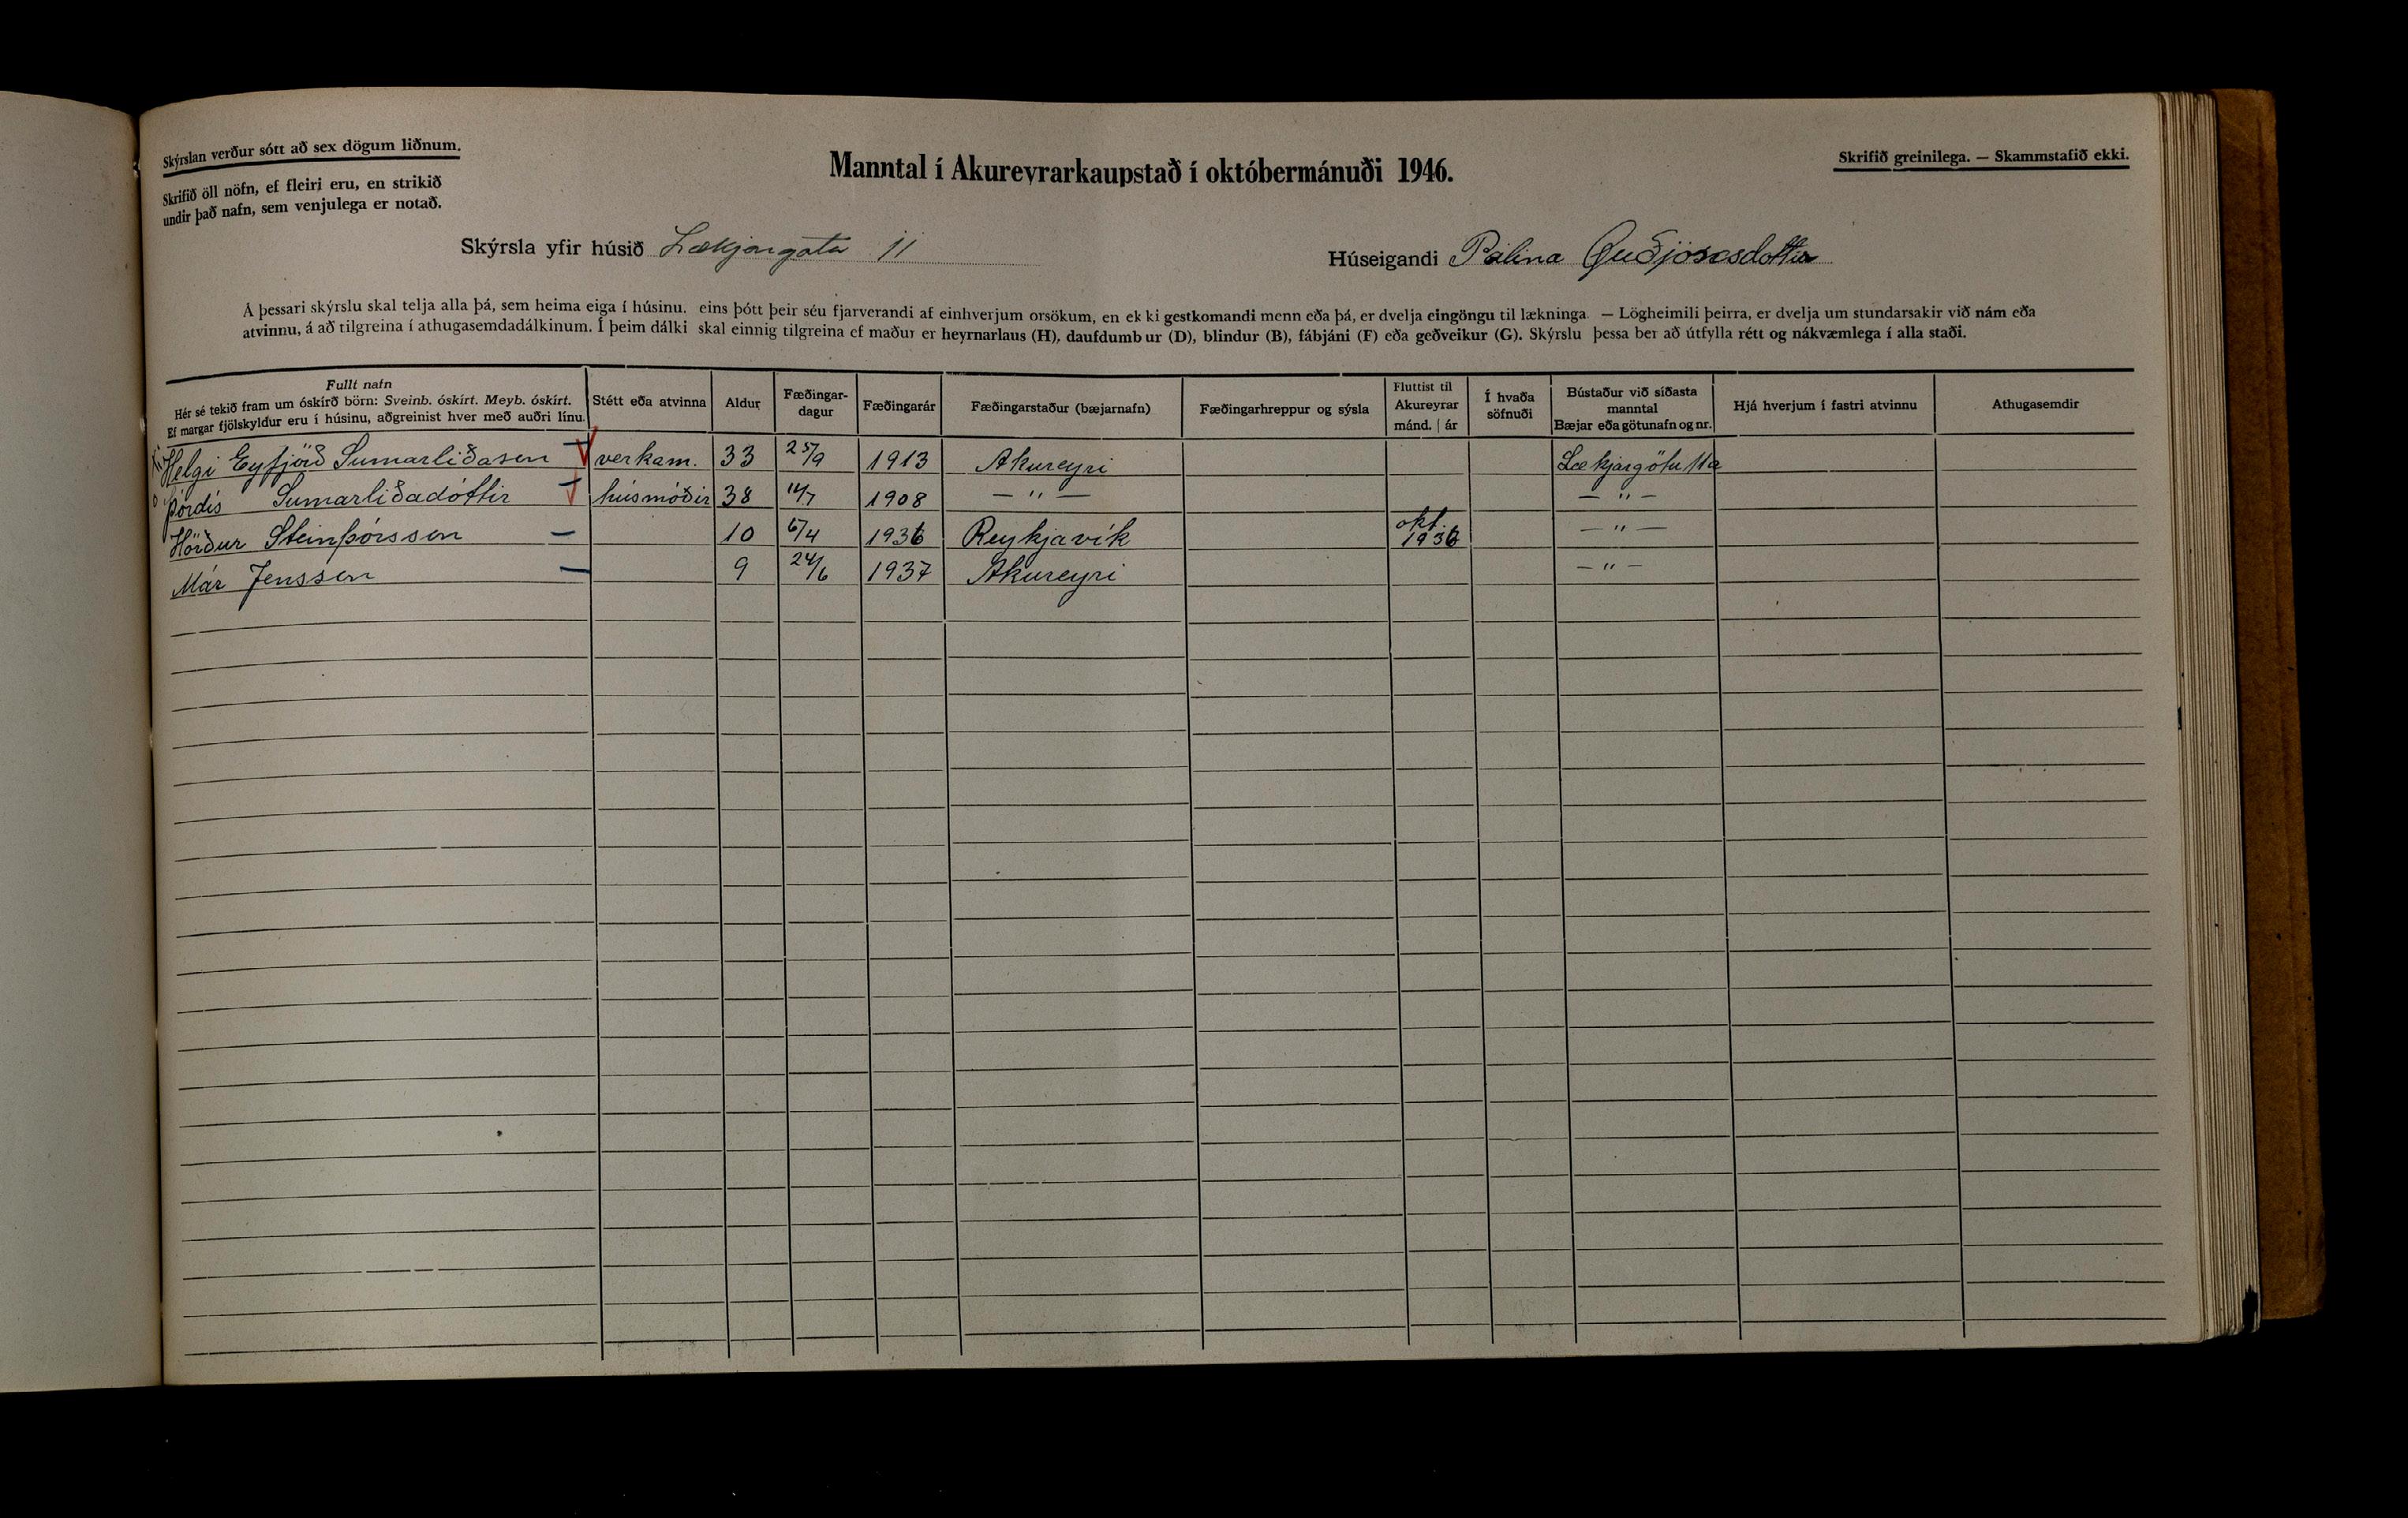 Skýrslan verður sótt að sex dögum liðnum.
Skrifið öll nöfn, ef fleiri eru, en strikið
undir það nafn, sem venjulega er notað.
Manntal í Akureyrarkaupstað í októbermánuði 1946.
Skrifið greinilega. — Skammstafið ekki.
Skýrsla yfir húsið Lækjargata 11
Húseigandi Pálina Guðjónsdóttir
Á þessari skýrslu skal telja alla þá, sem heima eiga í húsinu, eins þótt þeir séu fjarverandi af einhverjum orsökum, en ekki gestkomandi menn eða þá, er dvelja eingöngu til lækninga. — Lögheimili þeirra, er dvelja um stundarsakir við nám eða
atvinnu, á að tilgreina í athugasemdadálkinum. Í þeim dálki skal einnig tilgreina ef maður er heyrnarlaus (H), daufdumbur (D), blindur (B), fábjáni (F) eða geðveikur (G). Skýrslu þessa ber að útfylla rétt og nákvæmlega í alla staði.
Fullt nafn
Hér sé tekið fram um óskírð börn: Sveinb. óskírt. Meyb. óskírt.
Ef margar fjölskyldur eru í húsinu, aðgreinist hver með auðri línu.
Stétt eða atvinna
Aldur
Fæðingar-
dagur
Fæðingarár
Fæðingarstaður (bæjarnafn)
Fæðingarhreppur og sýsla
Fluttist til
Akureyrar
mánd. | ár
Í hvaða
söfnuði
Bústaður við síðasta
manntal
Bæjar eða götunafn og nr.
Hjá hverjum í fastri atvinnu
Athugasemdir
Helgi Eyfjörð Sumarliðason verkam. 33 25/9 1913 Akureyri Lækjargötu 11a
Þórdís Sumarliðadóttir húsmóðir 38 14/7 1908 — " — — " —
Hörður Steinþórsson 10 6/4 1936 Reykjavík okt. 1936 — " —
Már Jensson 9 24/6 1937 Akureyri — " —